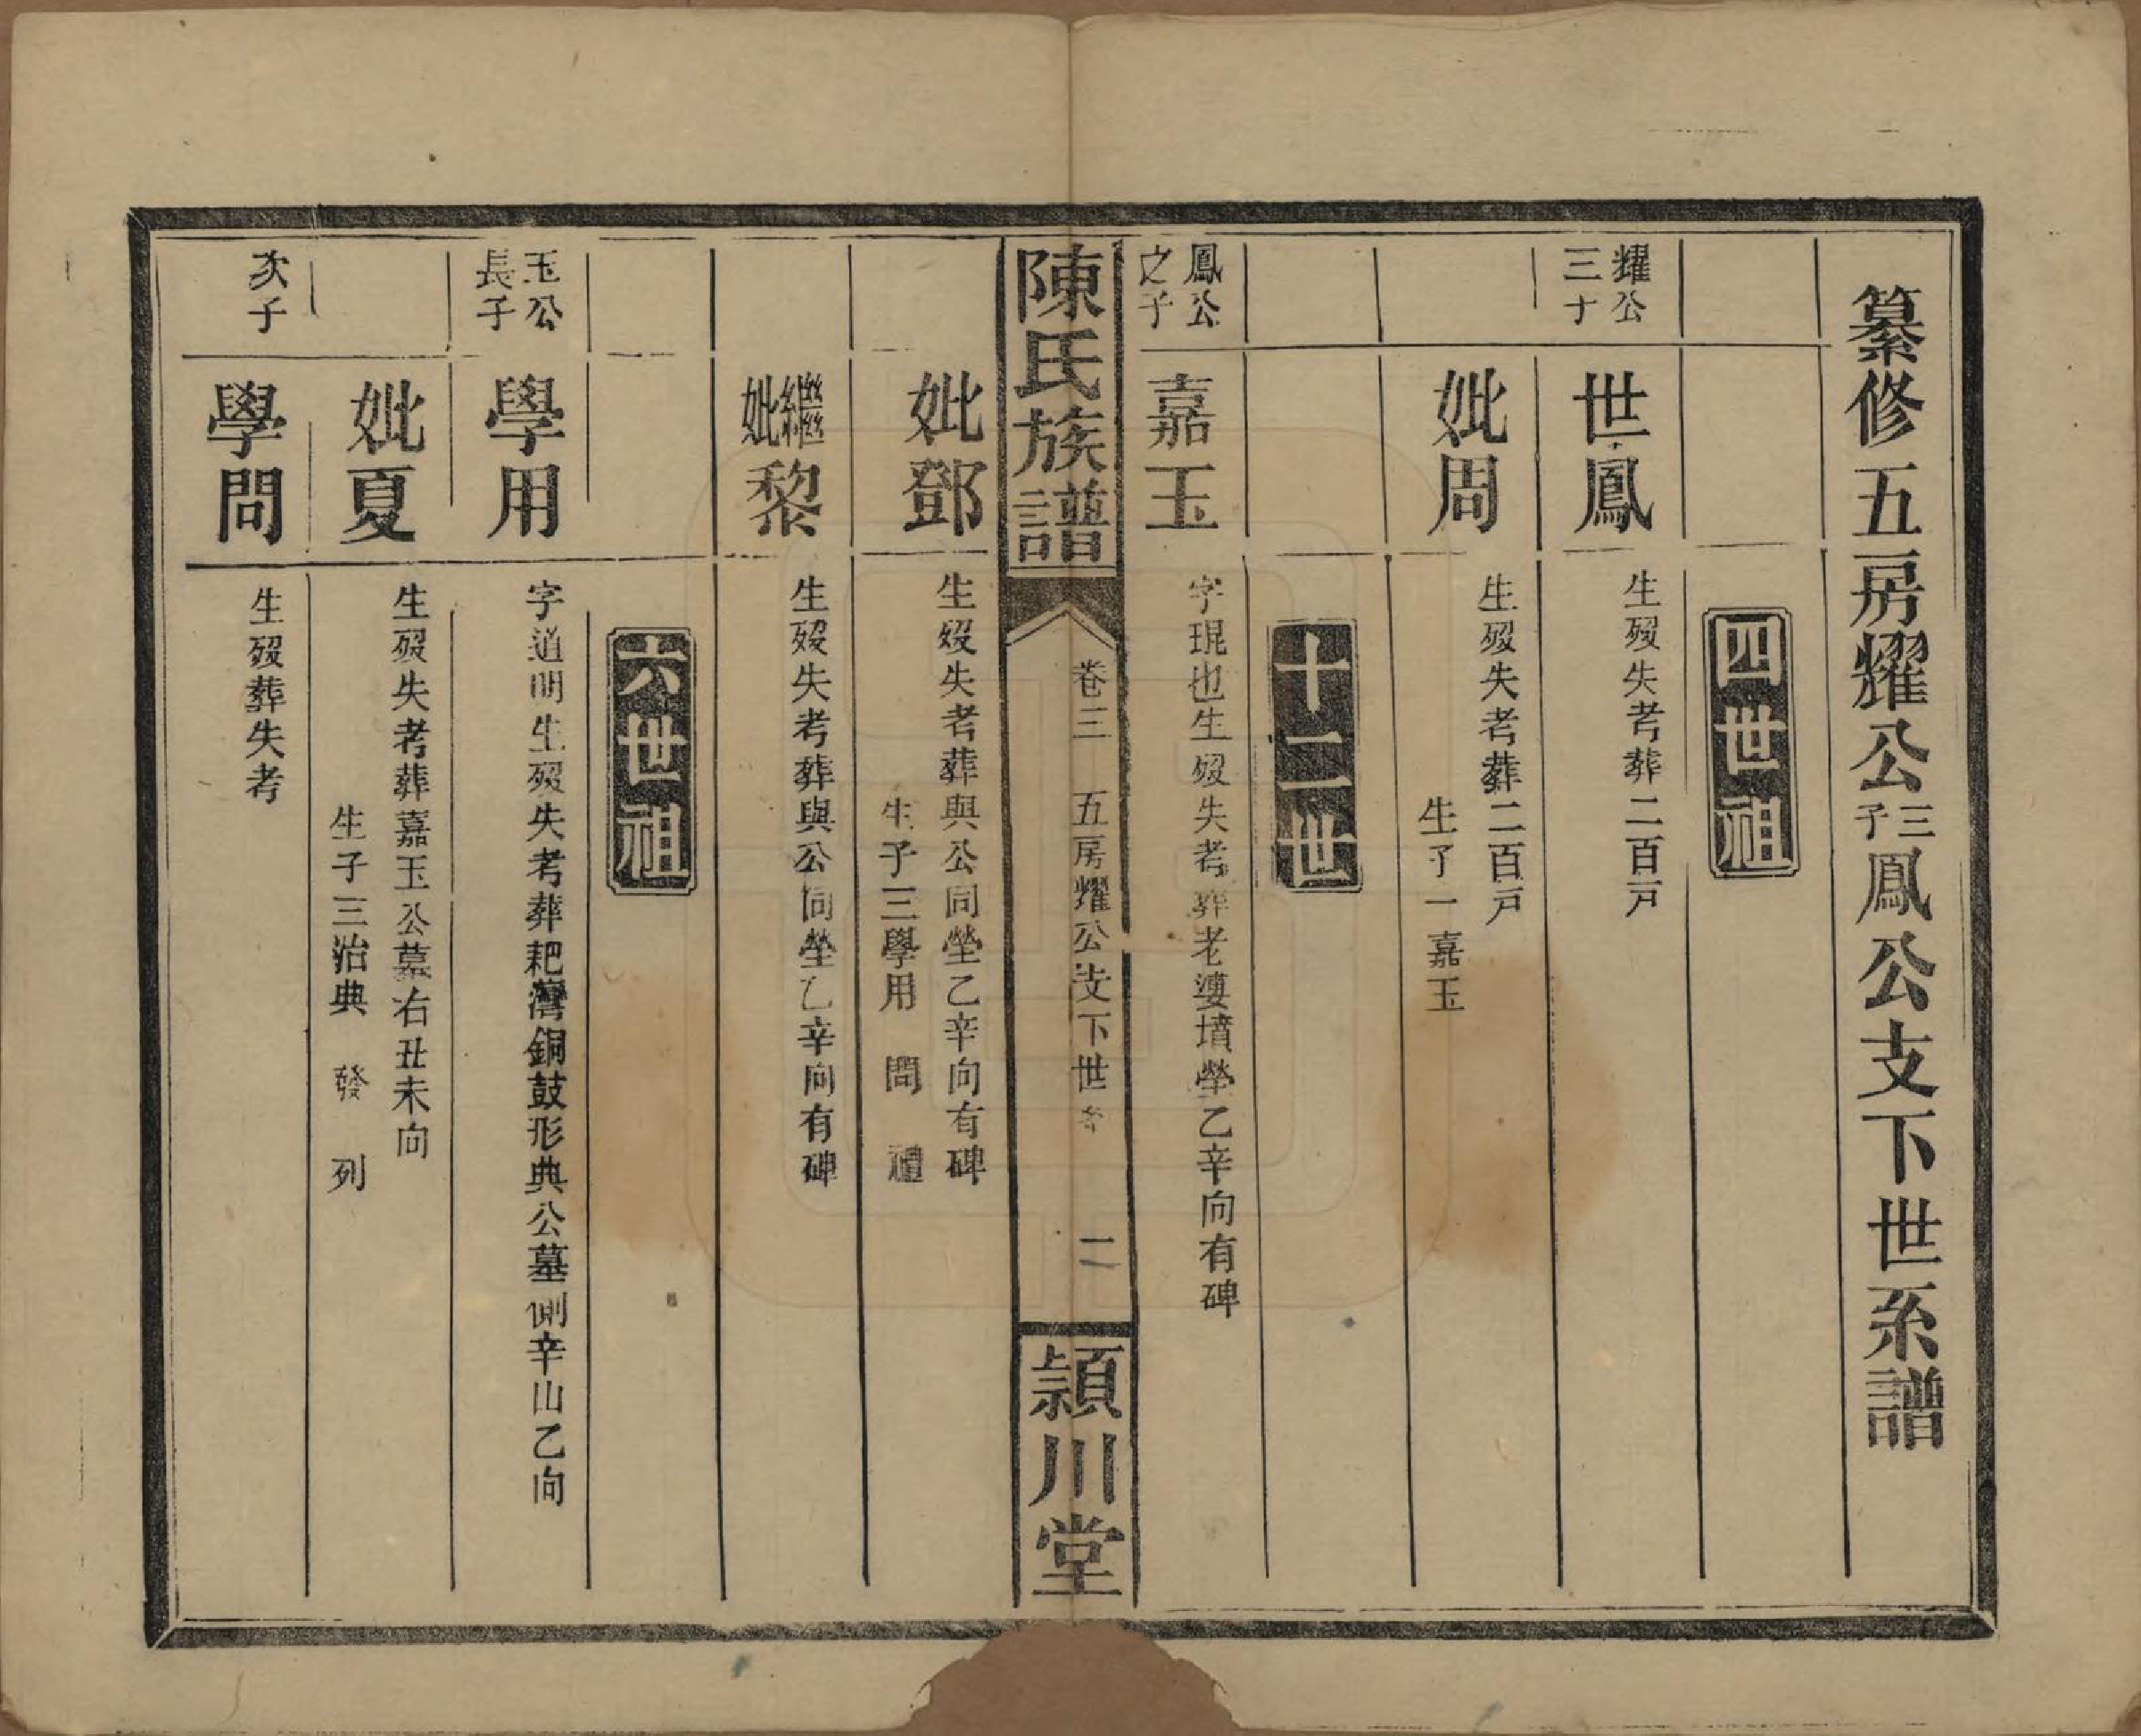 纂修五房耀公三子鳳公支下世系譜
四世祖
耀公三十
世鳳
生歿失考葬二百戸
妣周
生歿失考葬二百戸
生子一嘉玉
十二世
鳳公之子
嘉玉
字琨也生歿失考葬老婆墳塋乙辛向有碑
陳氏族譜
卷三
五房耀公支下世系
二
潁川堂
妣鄧
生歿失考葬與公同塋乙辛向有碑
生子三學用 問 禮
繼妣黎
生歿失考葬與公同塋乙辛向有碑
六世祖
玉公長子
學用
字道明生歿失考葬耙灣銅鼓形典公墓側辛山乙向
妣夏
生歿失考葬嘉玉公墓右丑未向
生子三治典 發 列
次子
學問
生歿葬失考